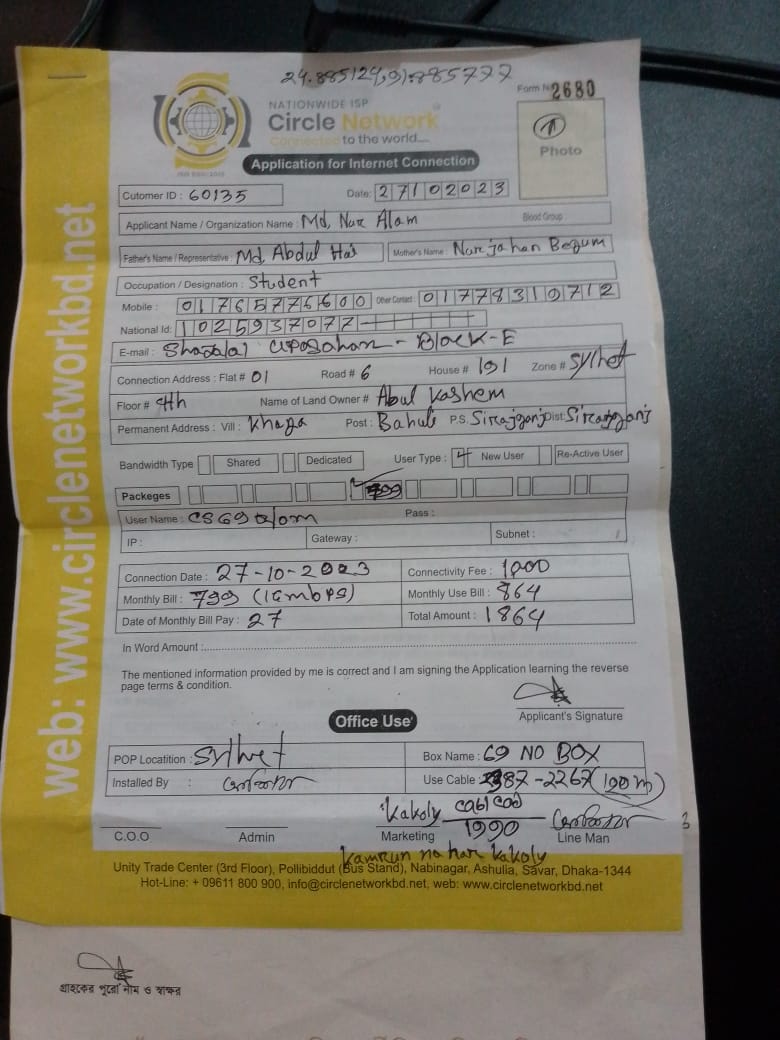 24.885124,91.885777
Form No 2680
NATIONWIDE ISP
Circle Network
Connected to the world....
ISO 9001:2015
Photo
Application for Internet Connection
Cutomer ID : 60135 Date: 27102023
Applicant Name / Organization Name : Md, Nur Alam Blood Group :
Father's Name / Representative : Md, Abdul Hai Mother's Name : Nurjahan Begum
Occupation / Designation : Student
Mobile : 01765776600 Other Contact : 01778310712
National Id: 1025937077
E-mail : Shadalal uposahan - Block-E
Connection Address : Flat # 01 Road # 6 House # 191 Zone # Sylhet
Floor # 4th Name of Land Owner # Abul Kashem
Permanent Address : Vill : Khaga Post : Bahuli P.S. Sirajganj Dist: Sirajganj
Bandwidth Type Shared Dedicated User Type : New User Re-Active User
Packeges 799
User Name : CS69alom Pass :
IP : Gateway : Subnet :
Connection Date : 27-10-2023 Connectivity Fee : 1000
Monthly Bill : 799 (16mbps) Monthly Use Bill : 864
Date of Monthly Bill Pay : 27 Total Amount : 1864
In Word Amount :
The mentioned information provided by me is correct and I am signing the Application learning the reverse
page terms & condition.
Applicant's Signature
Office Use
POP Locatition : Sylhet Box Name : 69 NO BOX
Installed By : Use Cable : 2387-2267 (120 m)
Kakoly 1990
C.O.O Admin Marketing Line Man
Kamrun nahar Kakoly
Unity Trade Center (3rd Floor), Pollibiddut (Bus Stand), Nabinagar, Ashulia, Savar, Dhaka-1344
Hot-Line: + 09611 800 900, info@circlenetworkbd.net, web: www.circlenetworkbd.net
web: www.circlenetworkbd.net
গ্রাহকের পুরো নাম ও স্বাক্ষর